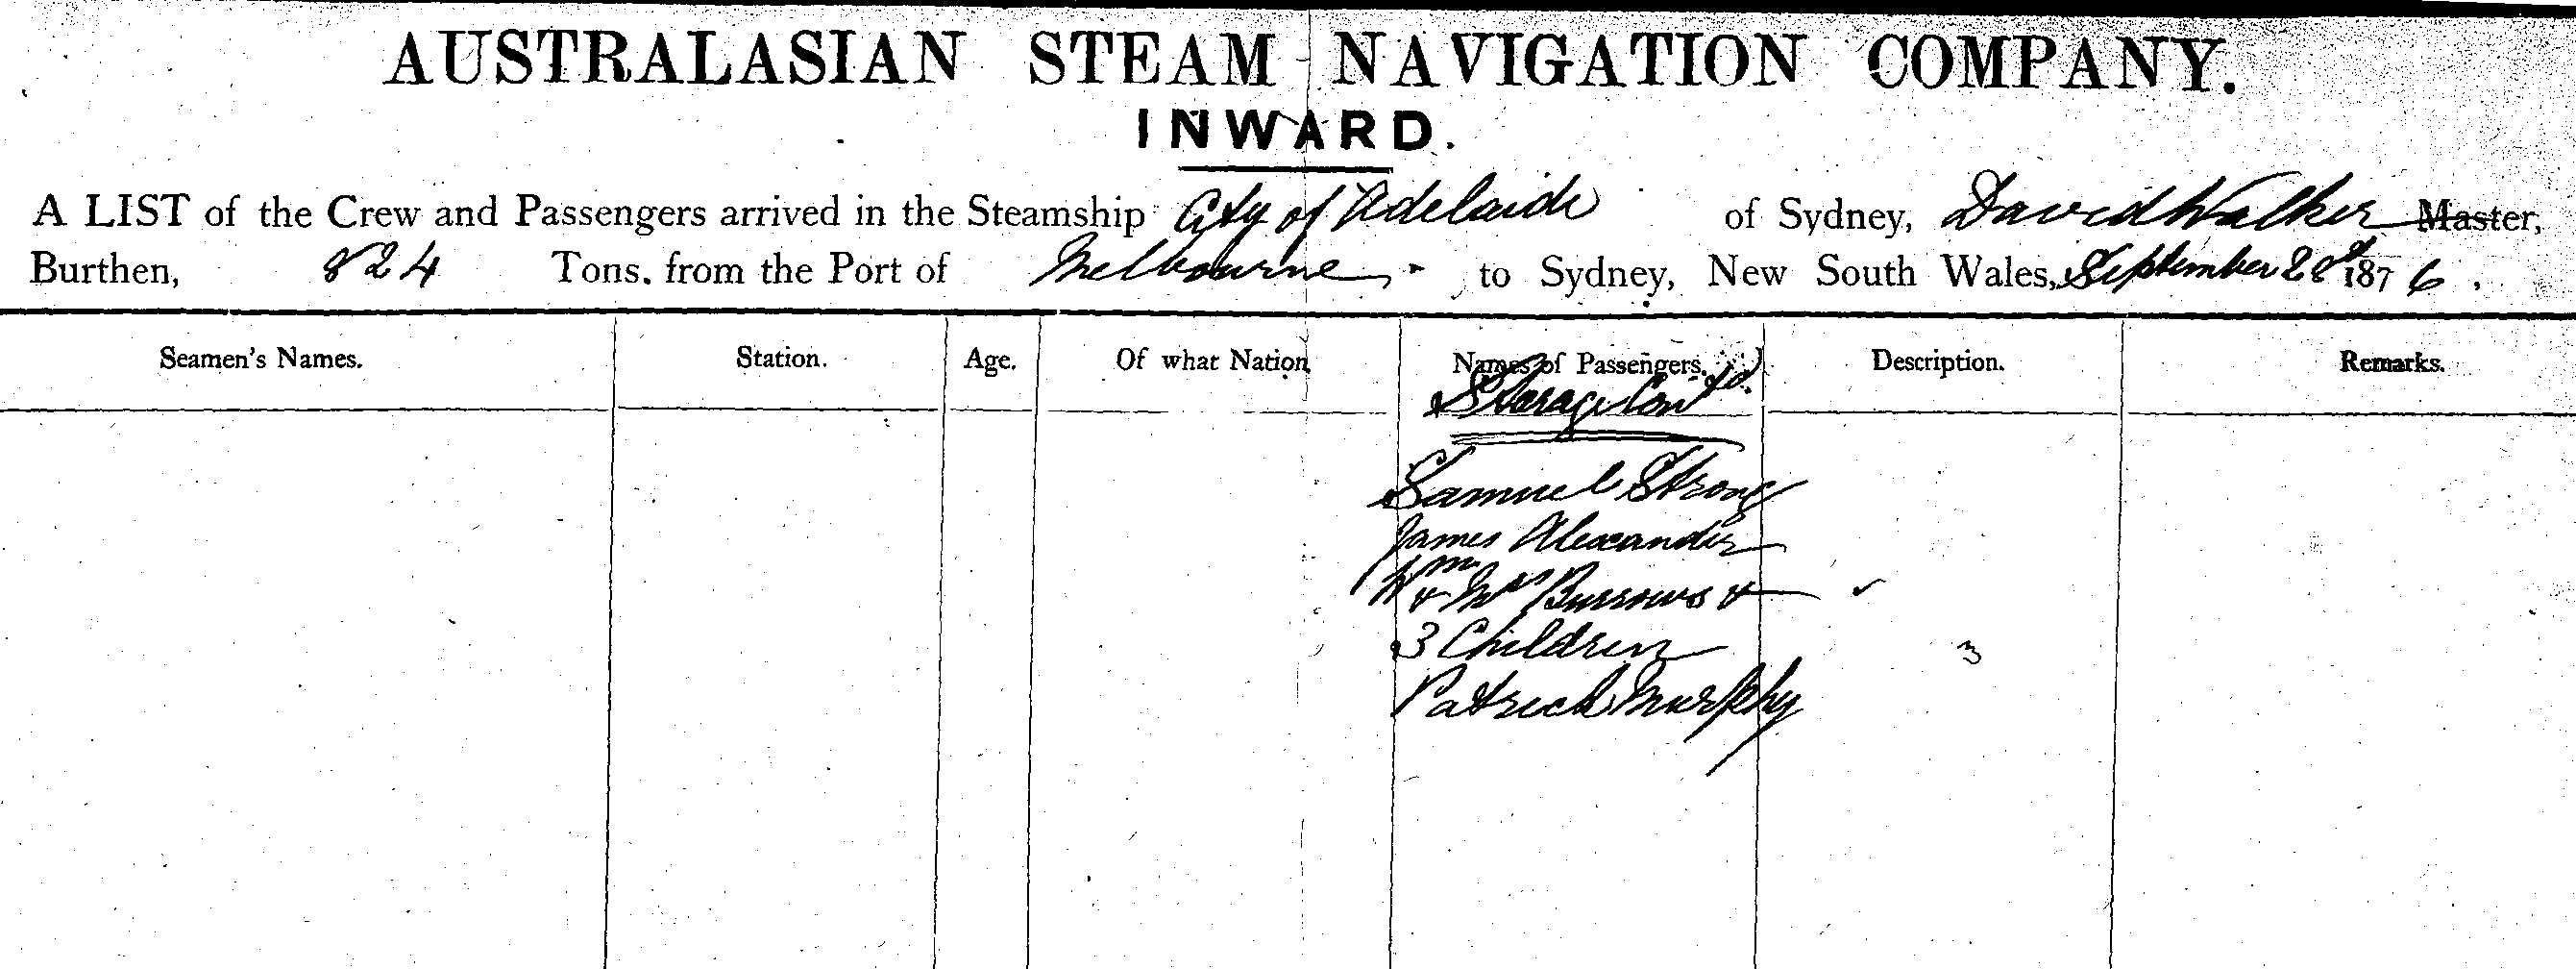 AUSTRALASIAN STEAM NAVIGATION COMPANY.
INWARD.
A LIST of the Crew and Passengers arrived in the Steamship City of Adelaide of Sydney, David Walker Master,
Burthen, 824 Tons. from the Port of Melbourne, to Sydney, New South Wales, September 28th 1876.
Seamen's Names. Station. Age. Of what Nation Names of Passengers. Description. Remarks.
Sterage Contd.
Samuel Strong
James Alexander
Wm & Mrs Burrows &
3 Children 3
Patrick Murphy